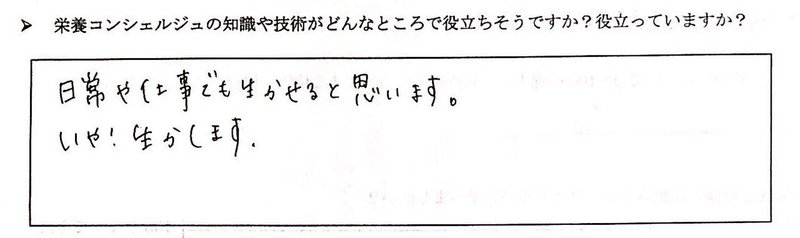 ➤ 栄養コンシェルジュの知識や技術がどんなところで役立ちそうですか？役立っていますか？
日常や仕事でも生かせると思います。
いや！生かします.